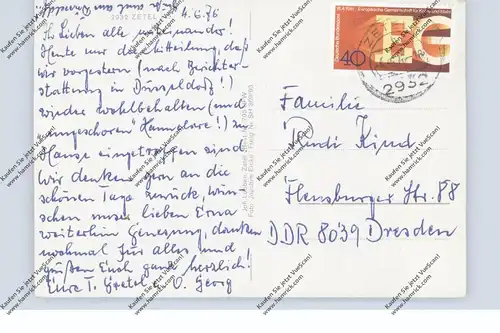 2932 ZETEL
4.6.76
Ihr Lieben alle miteinander!
Heute nur die Mitteilung, daß
wir vorgestern (nach Berichter-
stattung in Düsseldorf!)
wieder wohlbehalten (und
"ungeschoren" Hannelore!) zu
Hause eingetroffen sind
Wir denken gern an die
schönen Tage zurück, wün-
schen unser lieben Erna
weiterhin Genesung, danken
nochmal für alles und
grüßen Euch ganz herzlich!
Eure T. Gretel u. O. Georg
40
2932
Familie
Rudi Kind
Flensburger Str. 88
DDR 8039 Dresden
Kaufen Sie jetzt VueScan!
www.hamrick.com